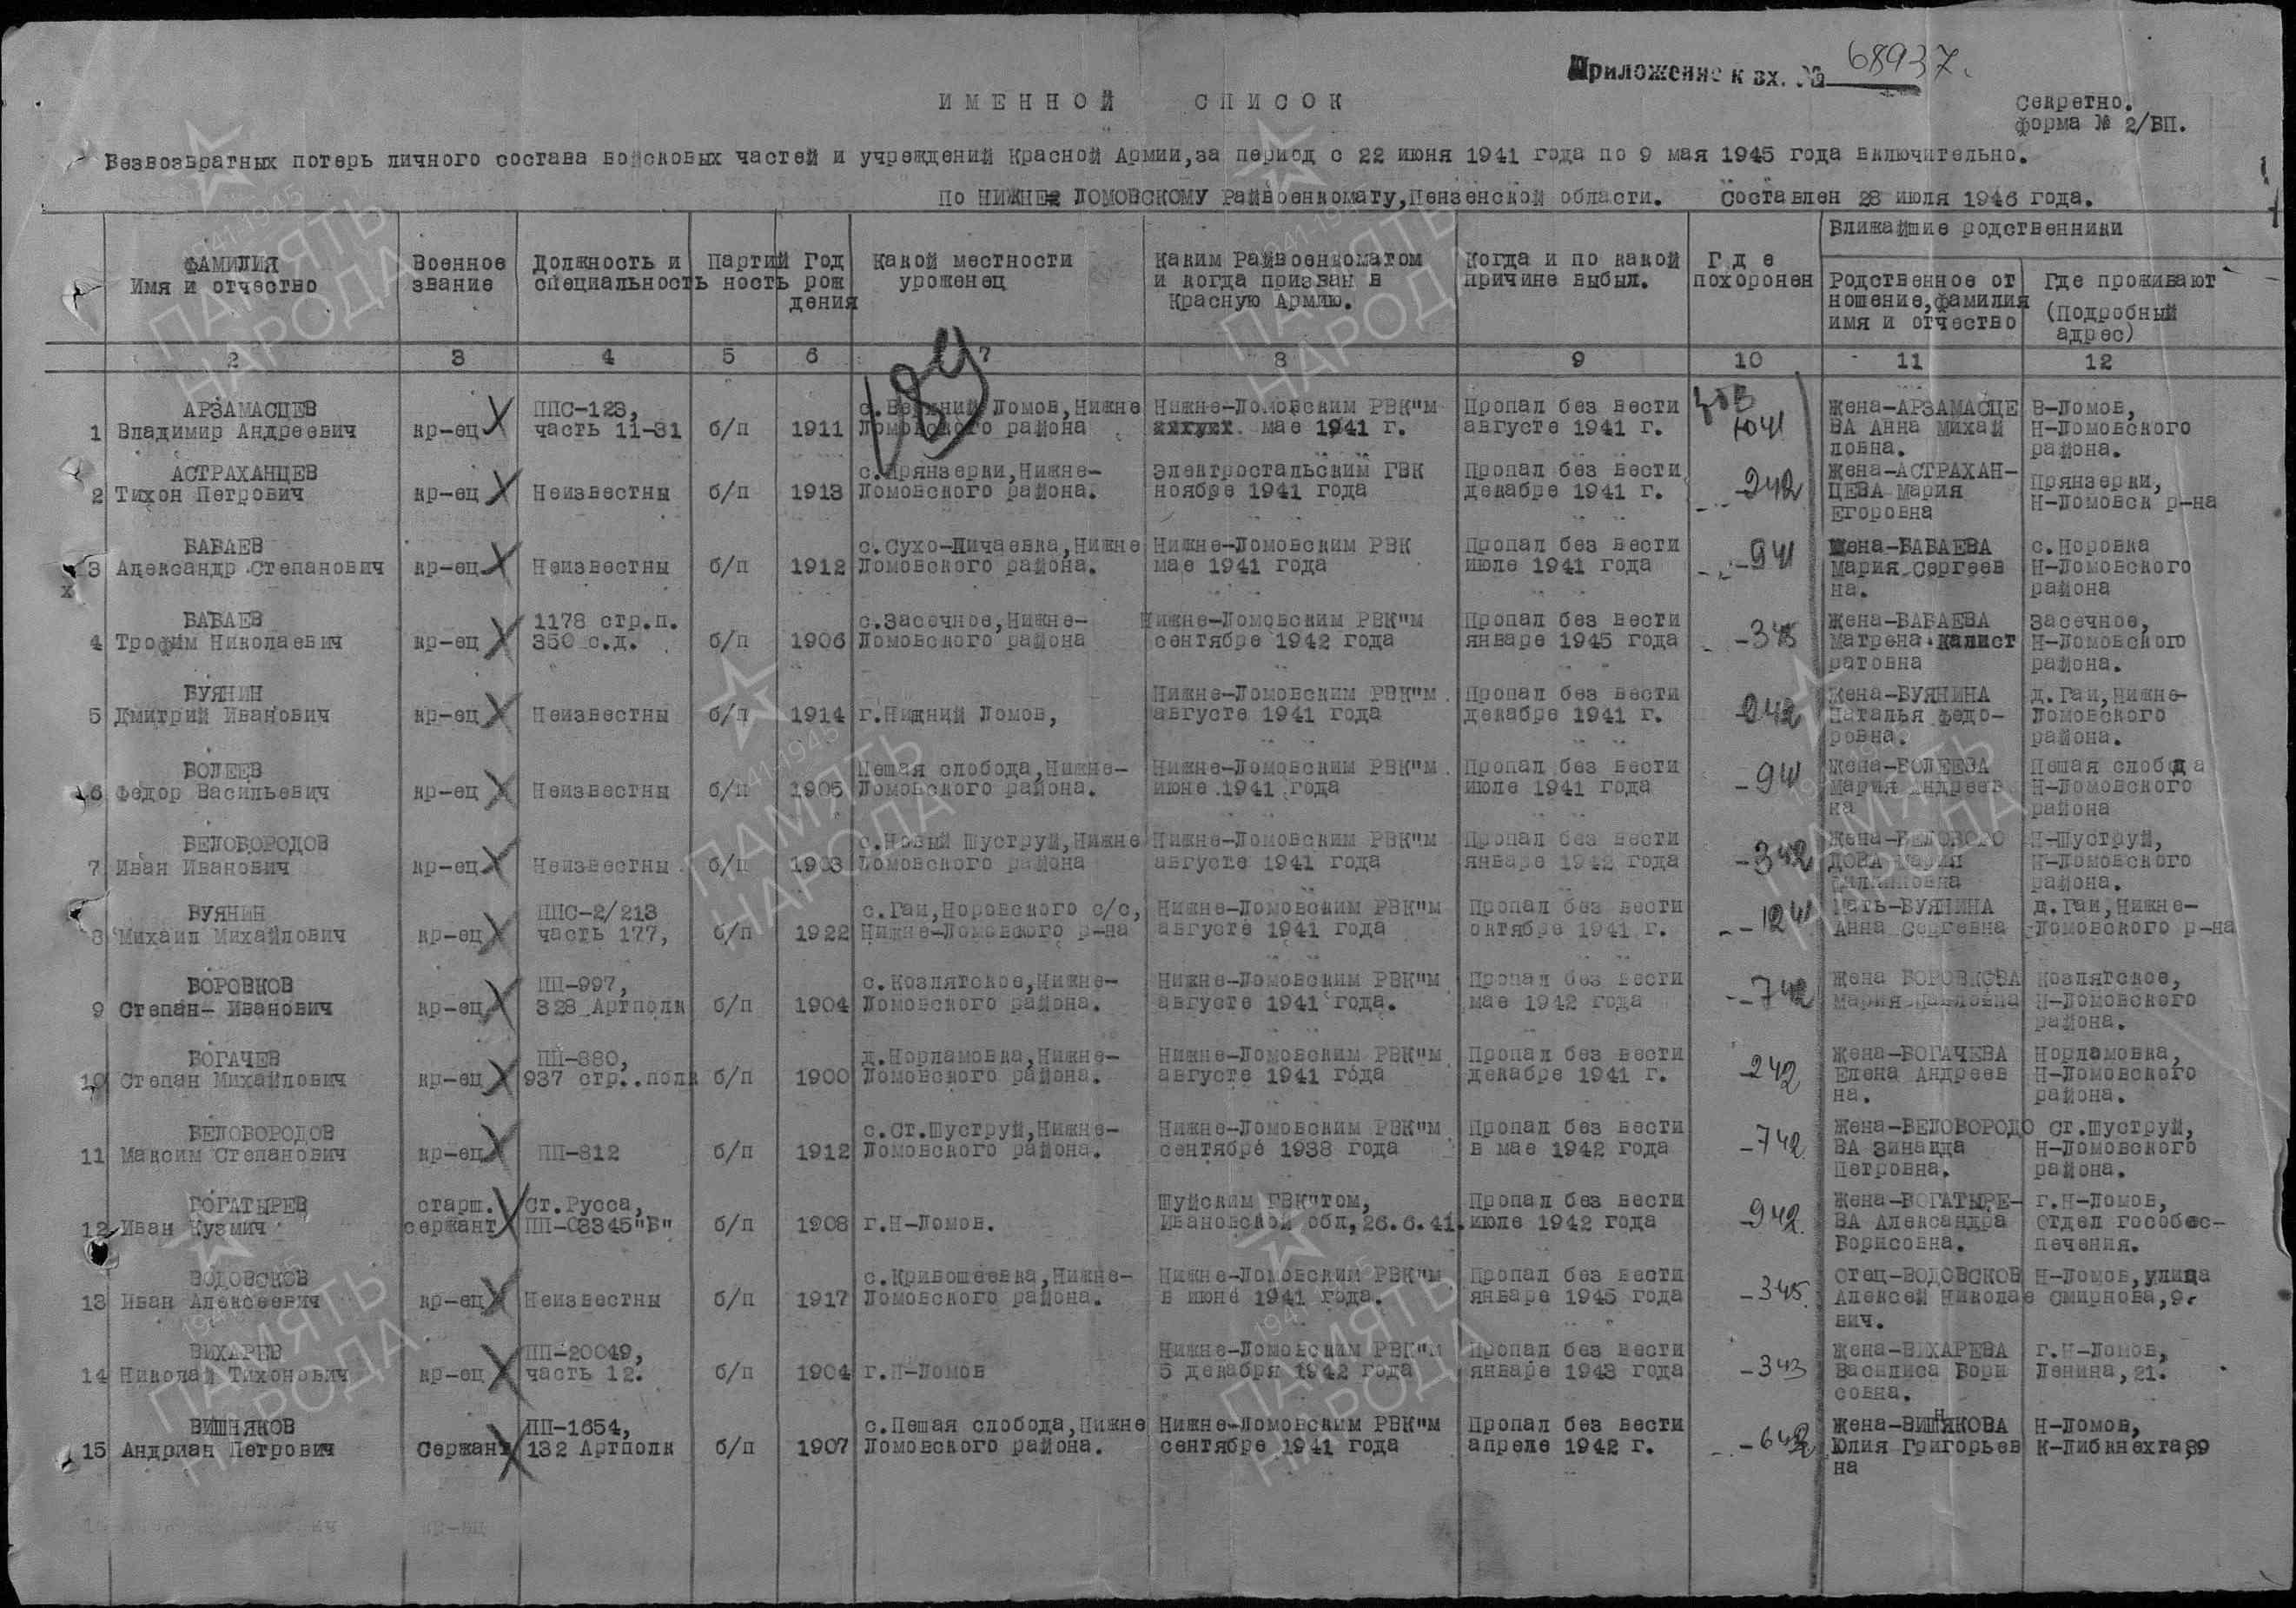 Приложение к вх. № 68937.
ИМЕННОЙ СПИСОК
Секретно.
форма № 2/БП.
Безвозвратных потерь личного состава войсковых частей и учреждений Красной Армии,за период с 22 июня 1941 года по 9 мая 1945 года включительно.
По НИЖНЕ ЛОМОВСКОМУ Райвоенкомату,Пензенской области. Составлен 28 июля 1946 года.
ФАМИЛИЯ Имя и отчество
Военное звание
Должность и специальность
Партий ность
Год рож дения
Какой местности уроженец
Каким Райвоенкоматом и когда призван в Красную Армию.
Когда и по какой причине выбыл.
Где похоронен
Ближайшие родственники
Родственное от ношение,фамилия имя и отчество
Где проживают (Подробный адрес)
2 3 4 5 6 7 8 9 10 11 12
189
АРЗАМАСЦЕВ ППС-123, с.Верхний Ломов,Нижне Нижне-Ломовским РВК"м Пропал без вести Жена-АРЗАМАСЦЕ В-Ломов,
1 Владимир Андреевич кр-ец часть 11-31 б/п 1911 Ломовского района мае 1941 г. августе 1941 г. 1041 ВА Анна Михай Н-Ломовского
ловна. района.
АСТРАХАНЦЕВ с.Прянзерки,Нижне- Электростальским ГВК Пропал без вести Жена-АСТРАХАН- Прянзерки,
2 Тихон Петрович кр-ец Неизвестны б/п 1913 Ломовского района. ноябре 1941 года декабре 1941 г. -242 ЦЕВА Мария Н-Ломовск р-на
Егоровна
БАБАЕВ с.Сухо-Пичаевка,Нижне Нижне-Ломовским РВК Пропал без вести Жена-БАБАЕВА с.Норовка
3 Александр Степанович кр-ец Неизвестны б/п 1912 Ломовского района. мае 1941 года июле 1941 года -941 Мария Сергеев Н-Ломовского
х на. района
БАБАЕВ 1178 стр.п. с.Засечное,Нижне- Нижне-Ломовским РВК"м Пропал без вести Жена-БАБАЕВА Засечное,
4 Трофим Николаевич кр-ец 350 с.д. б/п 1906 Ломовского района сентябре 1942 года январе 1945 года -345 Матрена Калист Н-Ломовского
ратовна района.
БУЯНИН Нижне-Ломовским РВК"м Пропал без вести Жена-БУЯНИНА д.Гаи,Нижне-
5 Дмитрий Иванович кр-ец Неизвестны б/п 1914 г.Нижний Ломов, августе 1941 года декабре 1941 г. -242 Наталья Федо- Ломовского
ровна. района.
БОЛЕЕВ Пешая слобода,Нижне- Нижне-Ломовским РВК"м Пропал без вести Жена-БОЛЕЕВА Пешая слобода
6 Федор Васильевич кр-ец Неизвестны б/п 1905 Ломовского района. июне 1941 года июле 1941 года -941 Мария Андреев Н-Ломовского
на района
БЕЛОБОРОДОВ с.Новый Шуструй,Нижне Нижне-Ломовским РВК"м Пропал без вести Жена-БЕЛОБОРО Н-Шуструй,
7 Иван Иванович кр-ец Неизвестны б/п 1903 Ломовского района августе 1941 года январе 1942 года -342 ДОВА Мария Н-Ломовского
района.
БУЯНИН ППС-2/213 с.Гаи,Норовского с/с, Нижне-Ломовским РВК"м Пропал без вести Мать-БУЯНИНА д.Гаи,Нижне-
8 Михаил Михайлович кр-ец часть 177, б/п 1922 Нижне-Ломовского р-на августе 1941 года октябре 1941 г. -1241 Анна Сергевна Ломовского р-на
БОРОВКОВ ПП-997, с.Козлятское,Нижне- Нижне-Ломовским РВК"м Пропал без вести Жена БОРОВКОВА Козлятское,
9 Степан- Иванович кр-ец 328 Артполк б/п 1904 Ломовского района. августе 1941 года. мае 1942 года -742 Мария Павловна Н-Ломовского
района.
БОГАЧЕВ ПП-880, д.Норламовка,Нижне- Нижне-Ломовским РВК"м Пропал без вести Жена-БОГАЧЕВА Норламовка,
10 Степан Михайлович кр-ец 937 стр..полк б/п 1900 Ломовского района. августе 1941 года декабре 1941 г. -242 Елена Андреев Н-Ломовского
на. района.
БЕЛОБОРОДОВ с.Ст.Шуструй,Нижне- Нижне-Ломовским РВК"м Пропал без вести Жена-БЕЛОБОРОДО Ст.Шуструй,
11 Максим Степанович кр-ец ПП-812 б/п 1912 Ломовского района. сентябре 1938 года в мае 1942 года -742 ВА Зинаида Н-Ломовского
Петровна. района.
БОГАТЫРЕВ старш. Ст.Русса, Шуйским ГВК"том, Пропал без вести Жена-БОГАТЫРЕ- г.Н-Ломов,
12 Иван Кузмич сержант ПП-03345"Б" б/п 1908 г.Н-Ломов. Ивановской обл,26.6.41. июле 1942 года -942 ВА Александра Отдел гособес-
Борисовна. печения.
ВОДОВСКОВ с.Кривошеевка,Нижне- Нижне-Ломовским РВК"м Пропал без вести Отец-ВОДОВСКОВ Н-Ломов,улица
13 Иван Алексеевич кр-ец Неизвестны б/п 1917 Ломовского района. в июне 1941 года. январе 1945 года -345 Алексей Николае Смирнова,9.
вич.
ВИХАРЕВ ПП-20049, Нижне-Ломовским РВК"м Пропал без вести Жена-ВИХАРЕВА г.Н-Ломов,
14 Николай Тихонович кр-ец часть 12. б/п 1904 г.Н-Ломов 5 декабря 1942 года январе 1943 года -343 Василиса Бори Ленина,21.
совна.
ВИШНЯКОВ ПП-1654, с.Пешая слобода,Нижне Нижне-Ломовским РВК"м Пропал без вести Жена-ВИШНЯКОВА Н-Ломов,
15 Андриан Петрович Сержант 132 Артполк б/п 1907 Ломовского района. сентябре 1941 года апреле 1942 г. -642 Юлия Григорьев К-Либкнехта,39
на